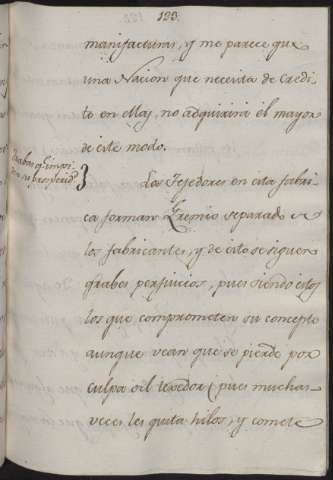 123.
manifacturas, y me parece que
una Nacion que necesita de credi
to en ellas, no adquirirá el mayor
de este modo.
Los Tejedores en esta fabri
ca forman Gremio separado de
los fabricantes, y de esto se siguen
grabes perjuicios, pues siendo estos
los que comprometen su concepto
aunque vean que se pierde por
culpa del texedor (pues muchas
veces les quita hilos, y comete